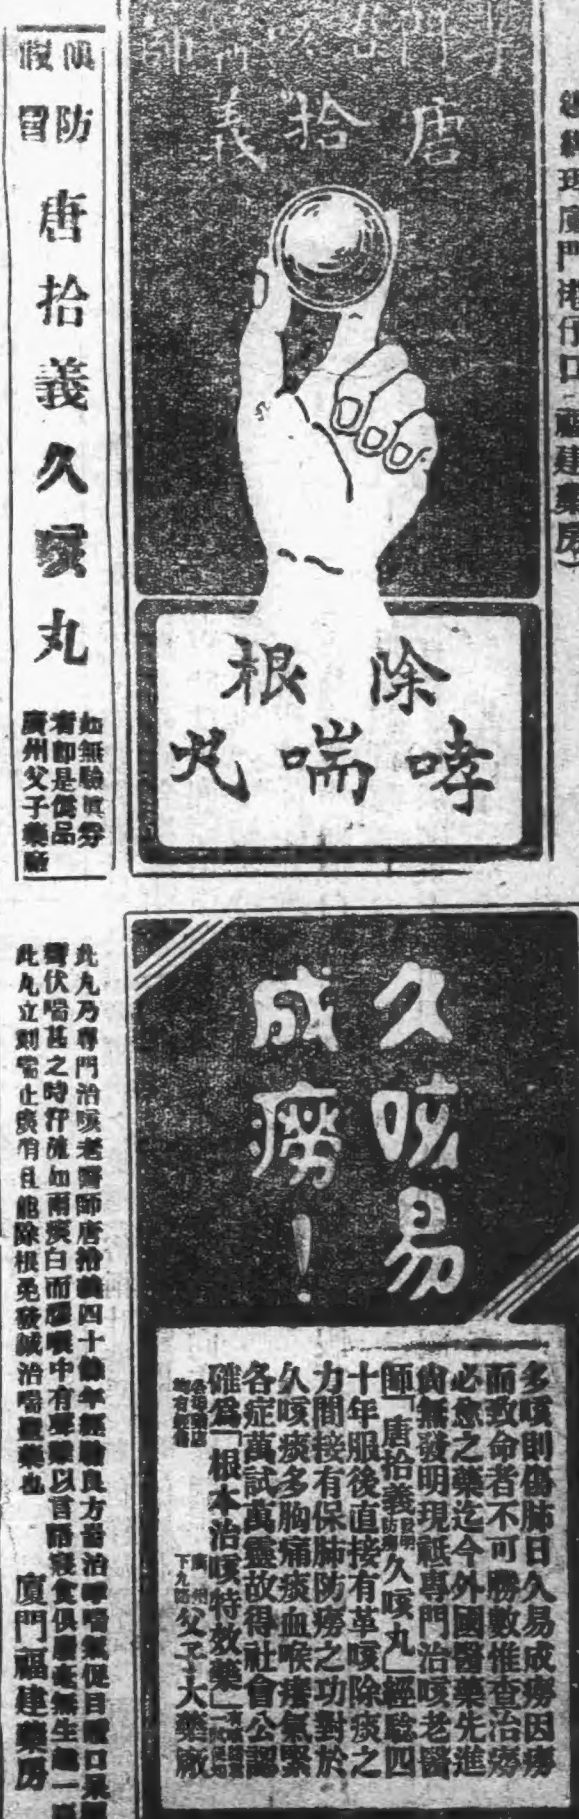 唐拾義
除根
哮喘丸
廈門港仔口福建藥房
防
假冒
唐拾義久咳丸
如無驗
者即是僞品
廣州父子藥廠
久咳易
成癆！
多咳則傷肺日久易成癆因癆
而致命者不可勝數惟查治癆
必愈之藥迄今外國醫藥先進
尙無發明現祗專門治咳老醫
師「唐拾義發明防癆久咳丸」經驗四
十年服後直接有革咳除痰之
力間接有保肺防癆之功對於
久咳痰多胸痛痰血喉癢氣緊
各症萬試萬靈故得社會公認
確爲「根本治咳特效藥」
廣州下九路父子大藥廠
此丸乃專門治咳老醫師唐拾義四十餘年經驗良方善治哮喘氣促目
伏喘甚之時汗流如雨痰白而膠喉中有聲
此丸立刻喘止痰消且能除根免發誠治喘靈藥也
廈門福建藥房